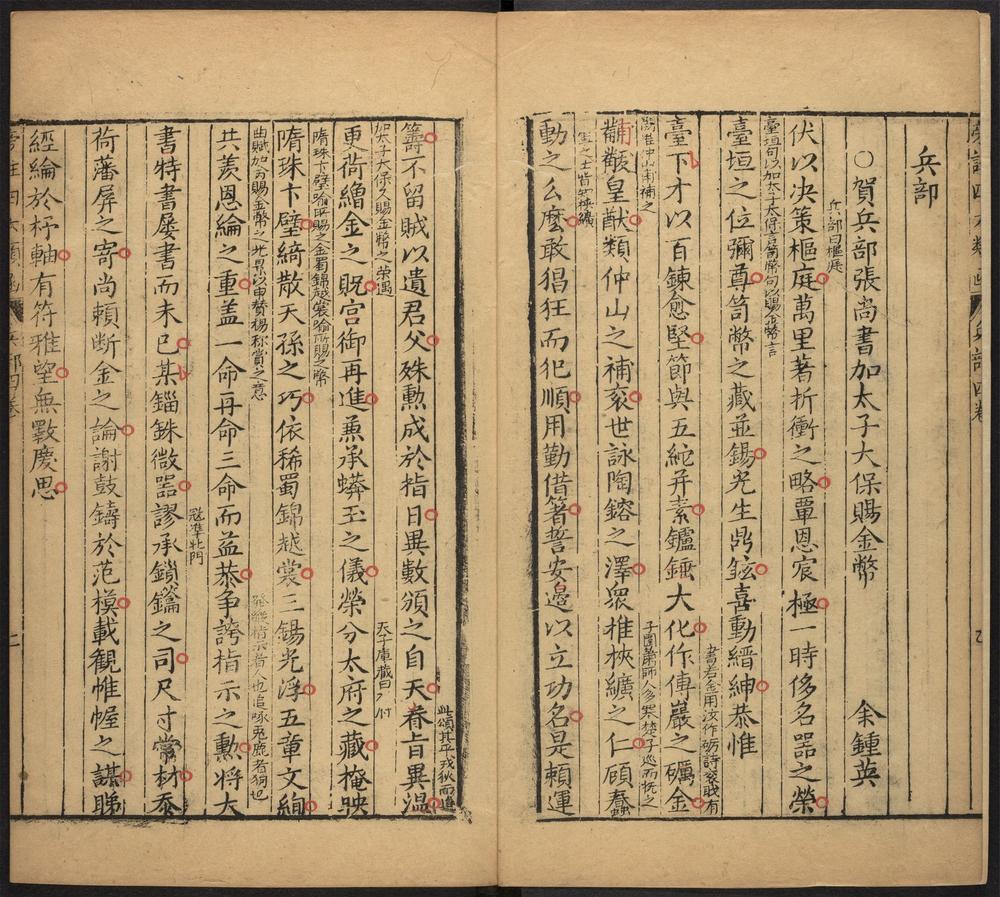 兵部
○賀兵部張尚書加太子太保賜金幣 余鍾英
兵部曰樞庭
伏以决策樞庭萬里著折衝之略覃恩宸極一時侈名器之榮
臺垣句以加太子太保言笥幣句以賜金幣言
臺垣之位彌尊笥幣之藏並錫光生鼎鉉喜動縉紳恭惟
書若金用汝作礪詩袞職有
臺下才以百鍊愈堅節與五紽并素鑪錘大化作傅巖之礪金
闕惟仲山甫補之 子圍蕭師人多寒楚子巡而撫之
黼黻皇猷類仲山之補袞世詠陶鎔之澤衆推挾纊之仁頃蠢
軍之士皆如挾纊
動之么麼敢猖狂而犯順用勤借箸誓安邊以立功名是賴運
此頌其平戎狄而進
籌不留賊以遺君父殊勲成於指日異數頒之自天眷旨異溫
加太子太保久賜金幣之榮遇 天子庫藏曰
更荷繒金之貺宮御再進蒹承蟒玉之儀榮分太府之藏掩映
隋珠卞璧喻所賜之金蜀錦越裳喻所賜之幣
隋珠卞璧綺散天孫之巧依稀蜀錦越裳三錫光浮五章文絢
共羨恩綸之重盖一命再命三命而益恭争誇指示之勲將大
發縱指示者人也追啄兎鹿者狗也
書特書屡書而未已某錙銖微器謬承鎖鑰之司尺寸常材忝
寇準北門
荷藩屏之寄尚頼断金之論謝鼓鑄於范模載覩帷幄之謀睇
經綸於杼軸有符雅望無斁慶思